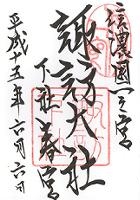 信濃國一之宮
諏訪大社
下社春宮
平成十五年六月六日